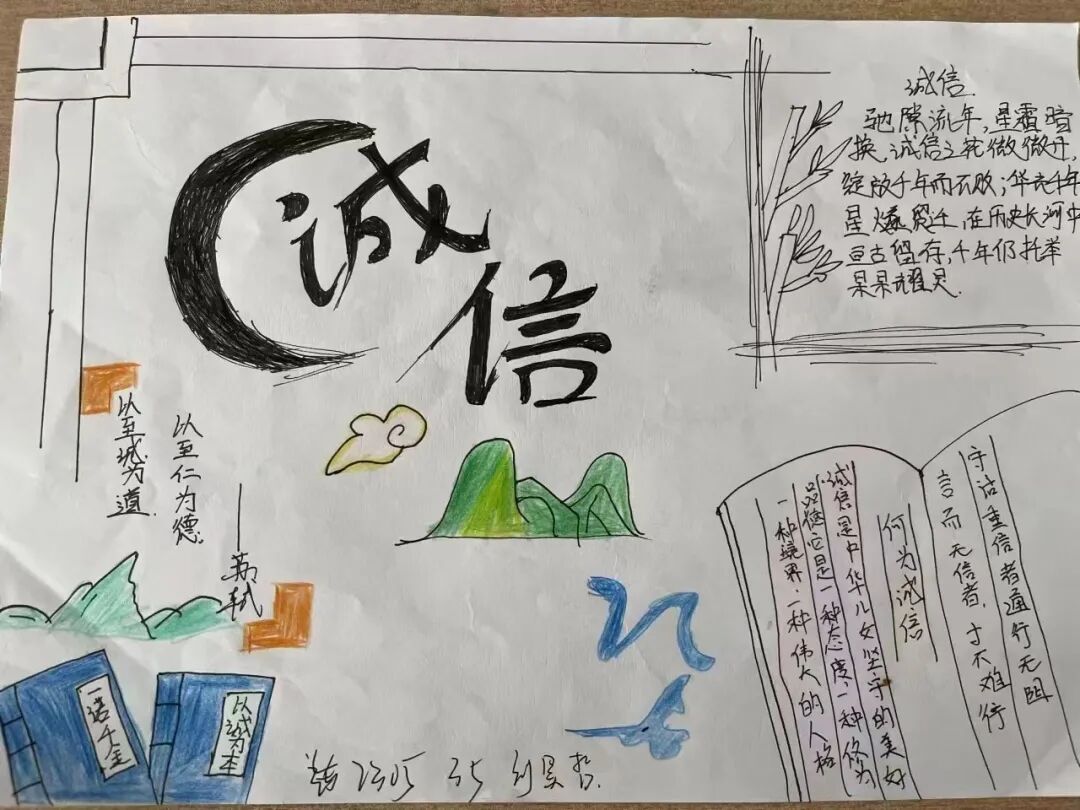 诚信
诚信.
驰隙流年,星霜暗
换,诚信之花做做开,
绽放千年而不败;华衣千年
星爆 迁,在历史长河中
亘古留存,千年仍托举
杲杲耀灵.
以至诚为道
以至仁为德.
——苏轼
一诺千金
以诚为本
守诺重信者通行无阻
言而无信者,寸不难行
何为诚信
诚信是中华儿女坚守的美好
品德它是一种态度,一种修为
一种境界,一种伟大的人格